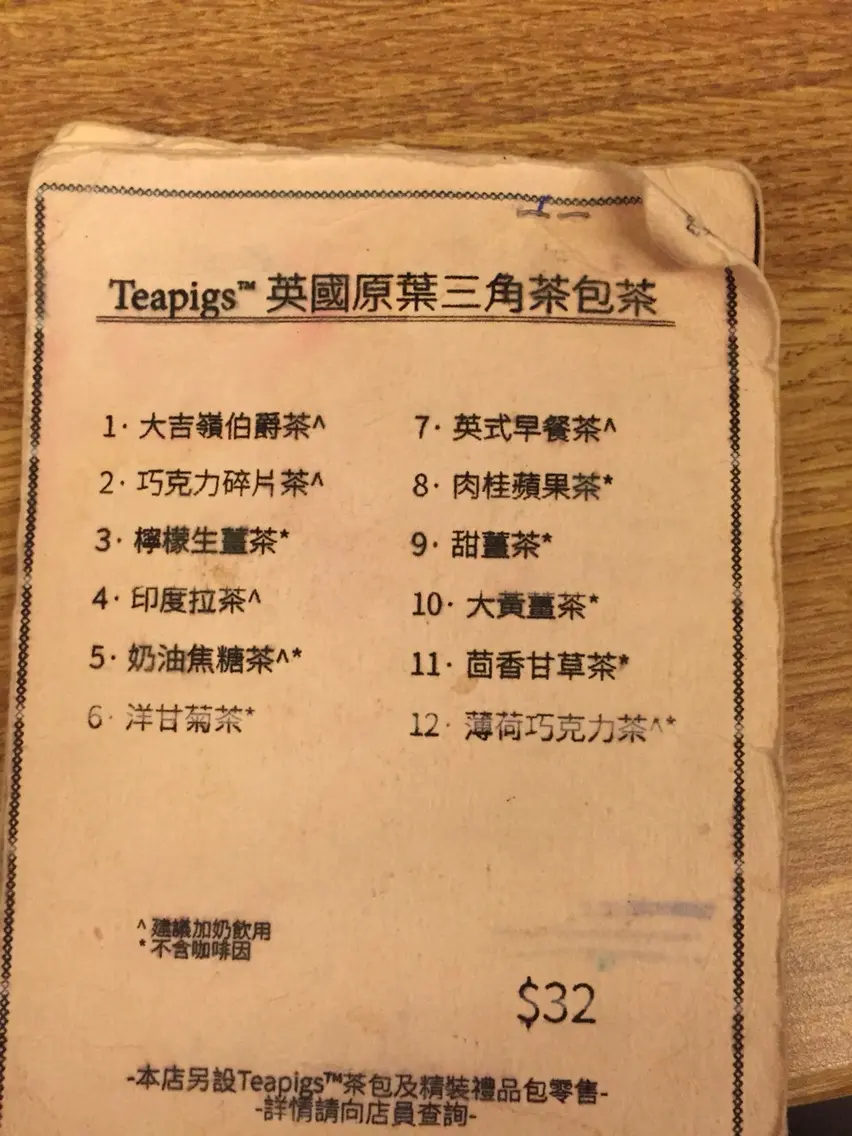 Teapigs™ 英國原葉三角茶包茶
1· 大吉嶺伯爵茶^
2· 巧克力碎片茶^
3· 檸檬生薑茶*
4· 印度拉茶^
5· 奶油焦糖茶^*
6· 洋甘菊茶*
7· 英式早餐茶^
8· 肉桂蘋果茶*
9· 甜薑茶*
10· 大黃薑茶*
11· 茴香甘草茶*
12· 薄荷巧克力茶^*
^ 建議加奶飲用
* 不含咖啡因
$32
-本店另設Teapigs™茶包及精裝禮品包零售-
-詳情請向店員查詢-